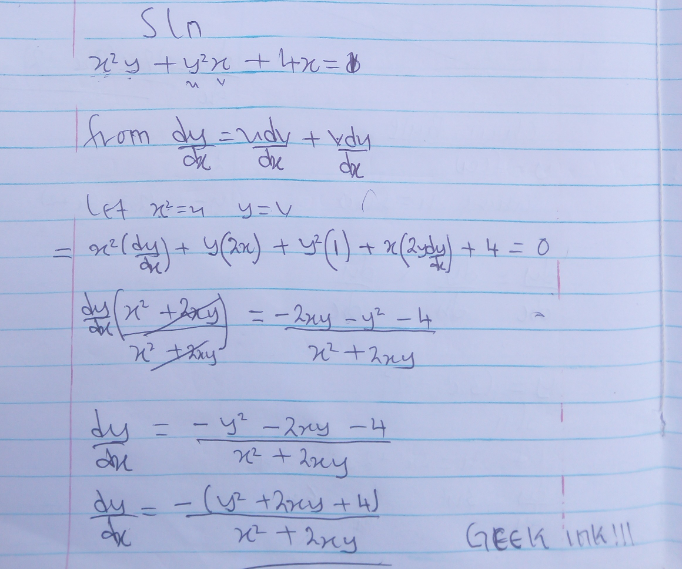 Sln
x²y + y²x + 4x = 
u v
from dy/dx = udv/dx + vdu/dx
Let x² = u y = v
= x²(dy/dx) + y(2x) + y²(1) + x(2ydy/dx) + 4 = 0
dy/dx (x² + 2xy)/(x² + 2xy) = (-2xy - y² - 4)/(x² + 2xy)
dy/dx = (-y² - 2xy - 4)/(x² + 2xy)
dy/dx = -(y² + 2xy + 4)/(x² + 2xy)
GEEK ink!!!